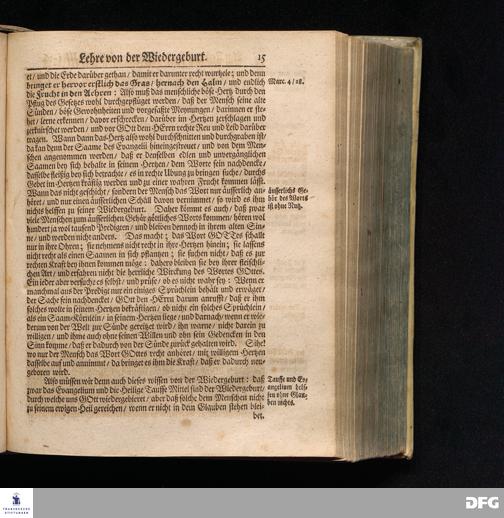 Lehre von der Wiedergeburt. 15
et/ und die Erde darüber gethan/ damit er darunter recht wurtzele; und denn
bringet er hervor erstlich das Gras/ hernach den Halm/ und endlich
die Frucht in den Aehren: Also muß das menschliche böse Hertz durch den
Pflug des Gesetzes wohl durchgepflüget werden/ daß der Mensch seine alte
Sünden/ böse Gewohnheiten und vorgefaßte Meynungen/ darinnen er ste-
het/ lerne erkennen/ davor erschrecken/ darüber im Hertzen zerschlagen und
zerknirschet werden/ und vor GOtt dem HErrn rechte Reu und Leid darüber
tragen. Wann dann das Hertz also wohl durchschnitten und durchgraben ist/
da kan denn der Saame des Evangelii hineingestreuet/ und von dem Men-
schen angenommen werden/ daß er denselben edlen und unvergänglichen
Saamen bey sich behalte in seinem Hertzen/ dem Worte fein nachdencke/
dasselbe fleißig bey sich betrachte/ es in rechte Ubung zu bringen suche/ durchs
Gebet im Hertzen kräftig werden und zu einer wahren Frucht kommen lässt.
Wann das nicht geschicht/ sondern der Mensch das Wort nur äusserlich an-
höret/ und nur einen äusserlichen Schall davon vernimmet/ so wird es ihm
nichts helffen zu seiner Wiedergeburt. Daher kömmt es auch/ daß zwar
viele Menschen zum äusserlichen Gehör göttliches Worts kommen/ hören wol
hundert ja wol tausend Predigten/ und bleiben dennoch in ihrem alten Sin-
ne/ und werden nicht anders. Das macht; das Wort GOTTes schallt
nur in ihre Ohren; sie nehmens nicht recht in ihre Hertzen hinein; sie lassens
nicht recht als einen Saamen in sich pflantzen; sie suchen nicht/ daß es zur
rechten Kraft bey ihnen komme möge: dahero bleiben sie bey ihrer fleischli-
chen Art/ und erfahren nicht die herrliche Wirckung des Wortes GOttes.
Ein jeder aber versuche es selbst/ und prüfe/ ob es nicht wahr sey: Wenn er
manchmal aus der Predigt nur ein einiges Sprüchlein behält und erweget/
der Sache fein nachdencket/ GOtt den HErrn darum anrufft/ daß er ihm
solches wolle in seinem Hertzen bekräftigen/ ob nicht ein solches Sprüchlein/
als ein Saam-Körnlein/ in seinem Hertzen liege/ und darnach/ wenn er wie-
derum von der Welt zur Sünde gereitzet wird/ ihn warne/ nicht darein zu
willigen/ und ihme auch ohne seinen Willen und ohn sein Gedencken in den
Sinn komme/ daß er dadurch von der Sünde zurück gehalten wird. Sihe!
wo nur der Mensch das Wort GOttes recht anhöret/ mit willigem Hertzen
dasselbe auf und annimmt/ da bringet es ihm die Kraft/ daß er dadurch neu-
geboren wird.
Also müssen wir denn auch dieses wissen von der Wiedergeburt: daß
zwar das Evangelium und die Heilige Tauffe Mittel sind der Wiedergeburt/
durch welche uns GOtt wiedergebieret/ aber daß solche dem Menschen nicht
zu seinem ewigen Heil gereichen/ wenn er nicht in dem Glauben stehen blei-
bet.
Marc. 4/28.
äusserlichs Ge-
hör des Worts
ist ohne Nutz.
Tauffe und Ev-
angelium helf-
fen ohne Glau-
ben nichts.
FRANCKESCHE
STIFTUNGEN
DFG